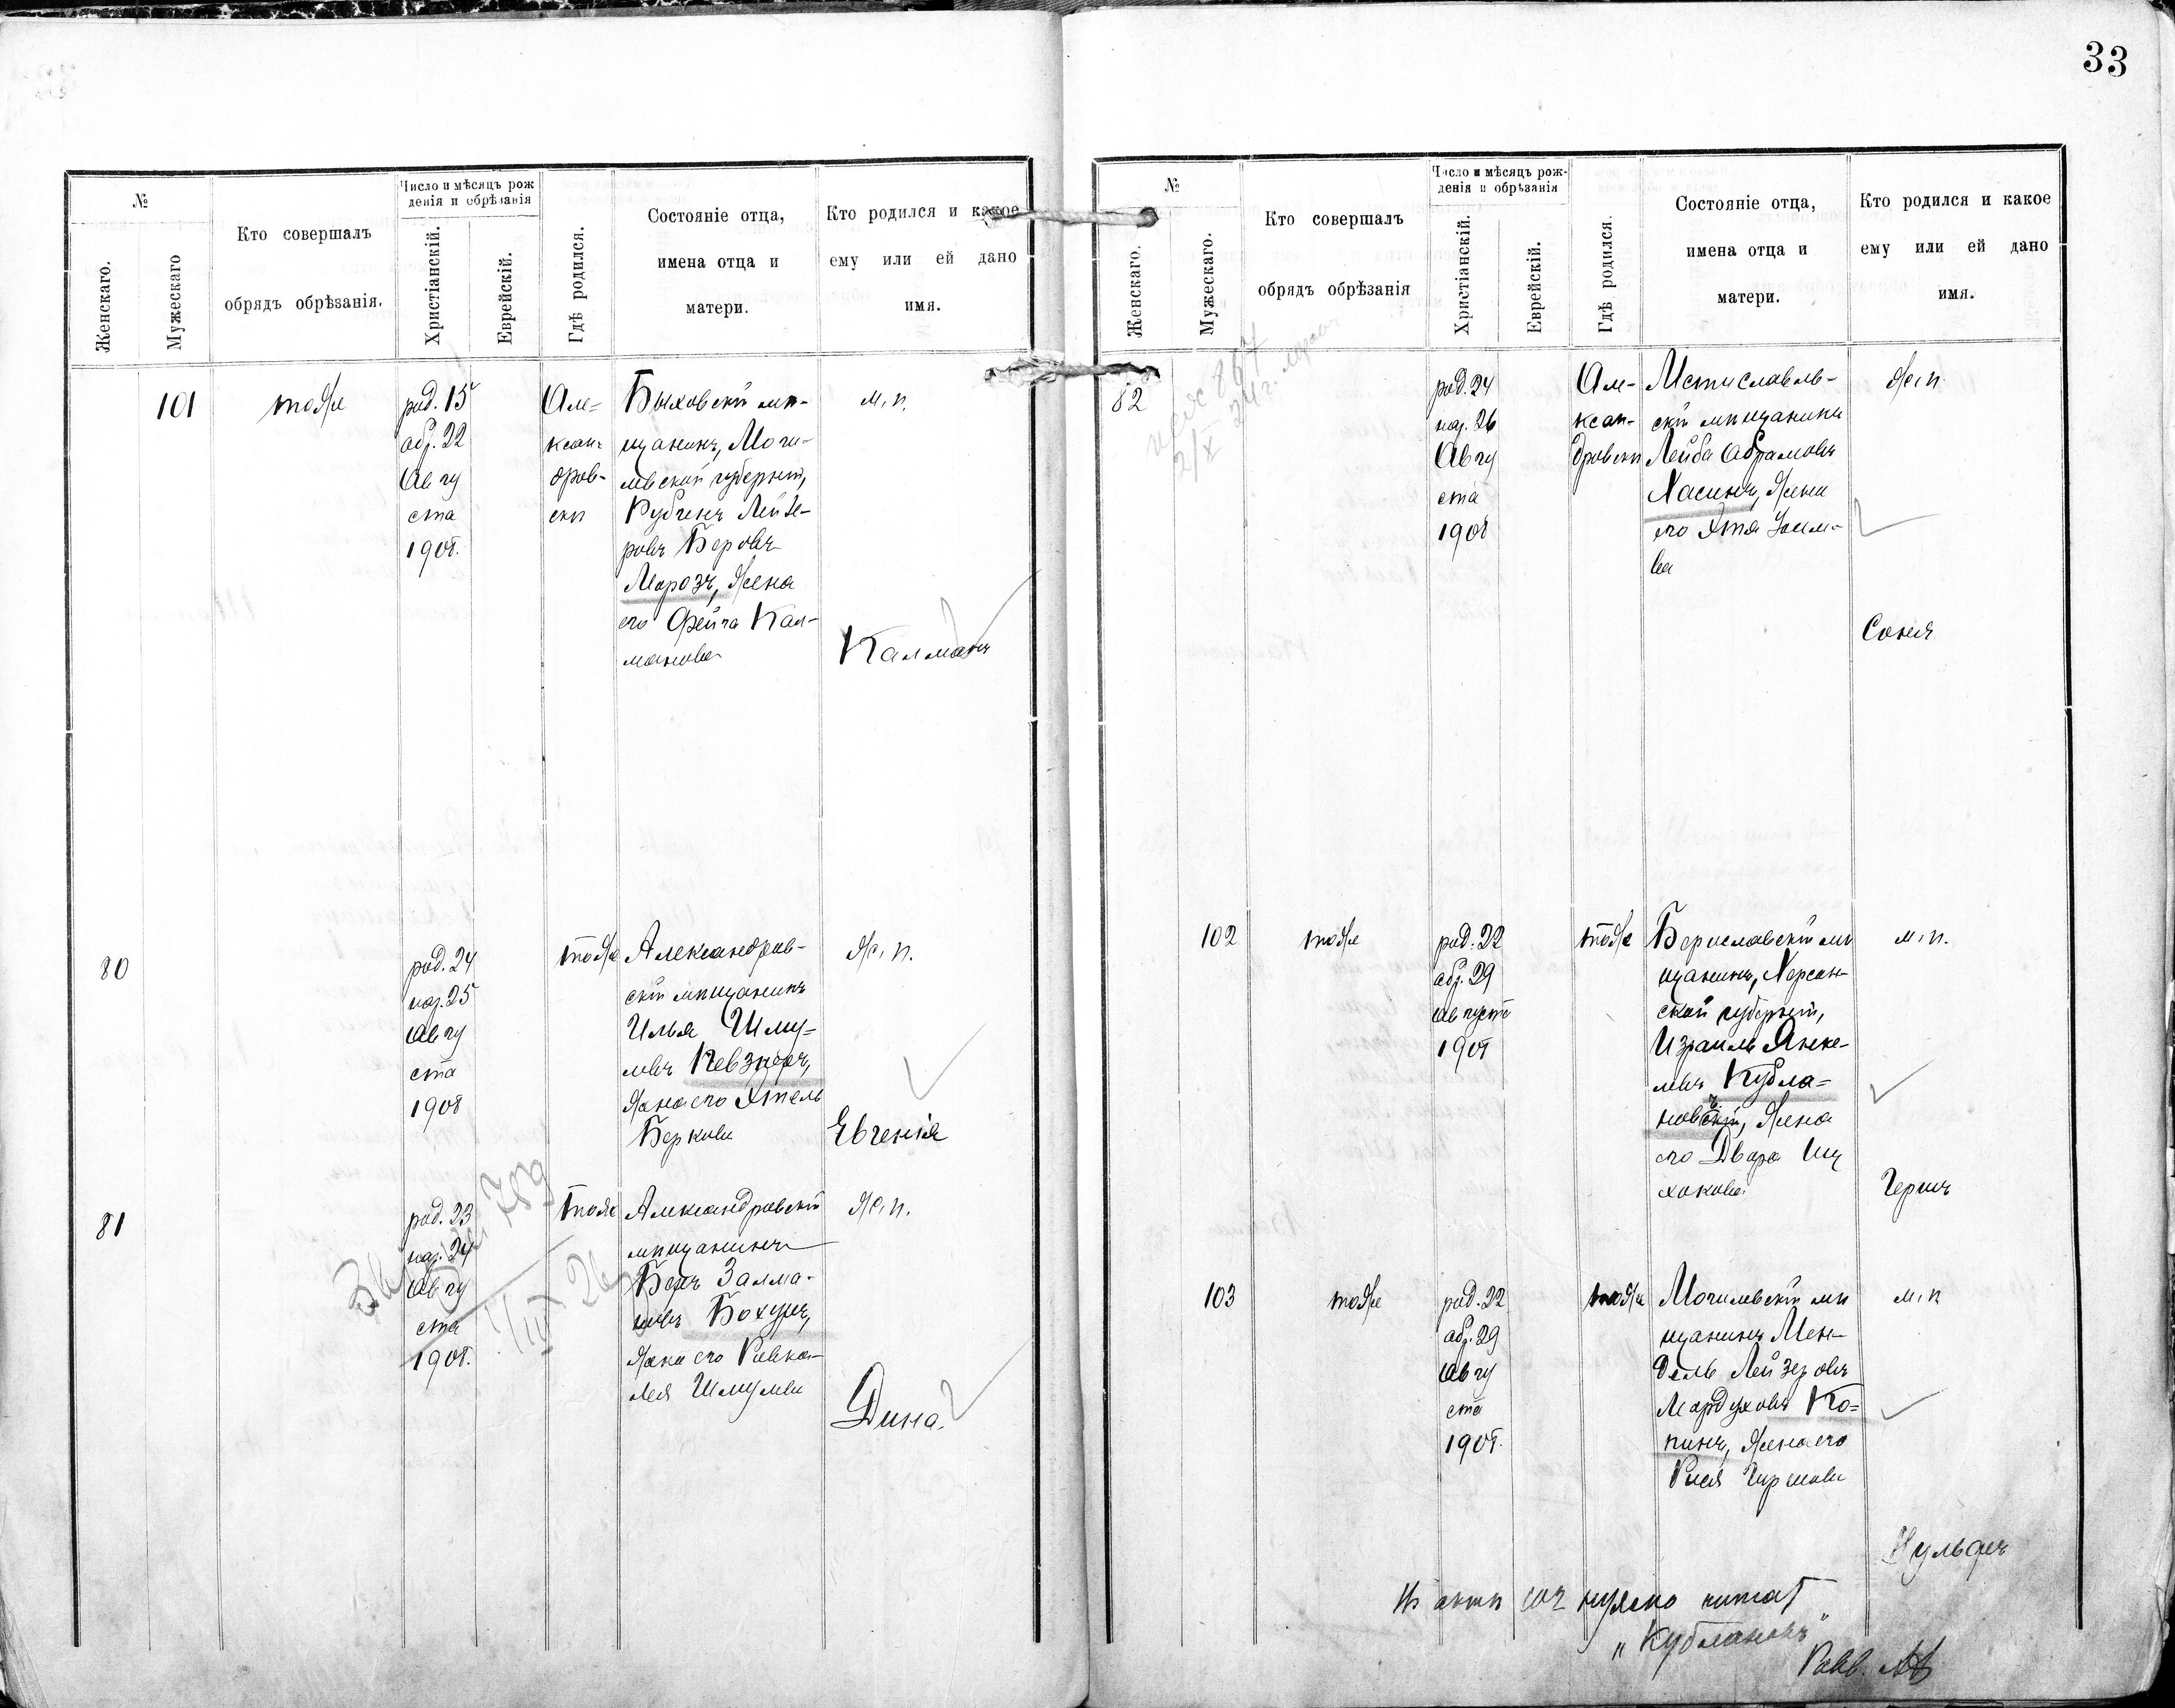 33
№
Женскаго.
Мужескаго
Кто совершалъ
обрядъ обрѣзанія.
Число и мѣсяцъ рож
денія и обрѣзанія
Христіанскій.
Еврейскій.
Гдѣ родился.
Состояніе отца,
имена отца и
матери.
Кто родился и какое
ему или ей дано
имя.
101
тоже
род. 15
обр. 22
Авгу
ста
1908.
Але=
ксан-
дров-
скѣ
Быховскій мѣ-
щанинъ, Моги-
левской губерніи,
Рубенъ Лейзе-
ровъ Беровъ
Морозъ, жена
его Фейга Кал-
манова
м. п.
Калманъ
80
род. 24
нар. 25
Авгу
ста
1908
тоже
Александров-
скій мѣщанинъ
Илья Шму-
левъ Певзнеръ,
жена его Этель
Беркова
ж. п.
Евгенія
81
род. 23
нар. 24
Авгу
ста
1908.
759
тоже
Александровскій
мѣщанинъ
Беръ Залма-
новъ Бохуръ,
жена его Ривка-
Лея Шмулева
ж. п.
Дина.
№
Женскаго.
Мужескаго.
Кто совершалъ
обрядъ обрѣзанія
Число и мѣсяцъ рож-
денія и обрѣзанія
Христіанскій.
Еврейскій.
Гдѣ родился.
Состояніе отца,
имена отца и
матери.
Кто родился и какое
ему или ей дано
имя.
82
867
2/X 24 г.
род. 24
нар. 26
Авгу
ста
1908
Але-
ксан-
дровскѣ
Мстиславль-
скій мѣщанинъ
Лейба Абрамовъ
Хасинъ, жена
его Этя
ж. п.
Соня
102
тоже
род. 22
обр. 29
Августа
1908
тоже
Бериславскій мѣ
щанинъ, Херсон-
ской губерніи,
Израиль Янке-
левъ Кубла-
новскій, жена
его Двора Иц
хокова
м. п.
Гершъ
103
тоже
род. 22
обр. 29
Авгу
ста
1908.
тоже
Могилевскій мѣ
щанинъ Мен-
дель Лейзеровъ
Мордуховъ Ко=
пинъ, жена его
Рися Гиршова
м. п
Вульфъ
Въ актѣ 102 нужно читат
„Кублановъ"
Равв.